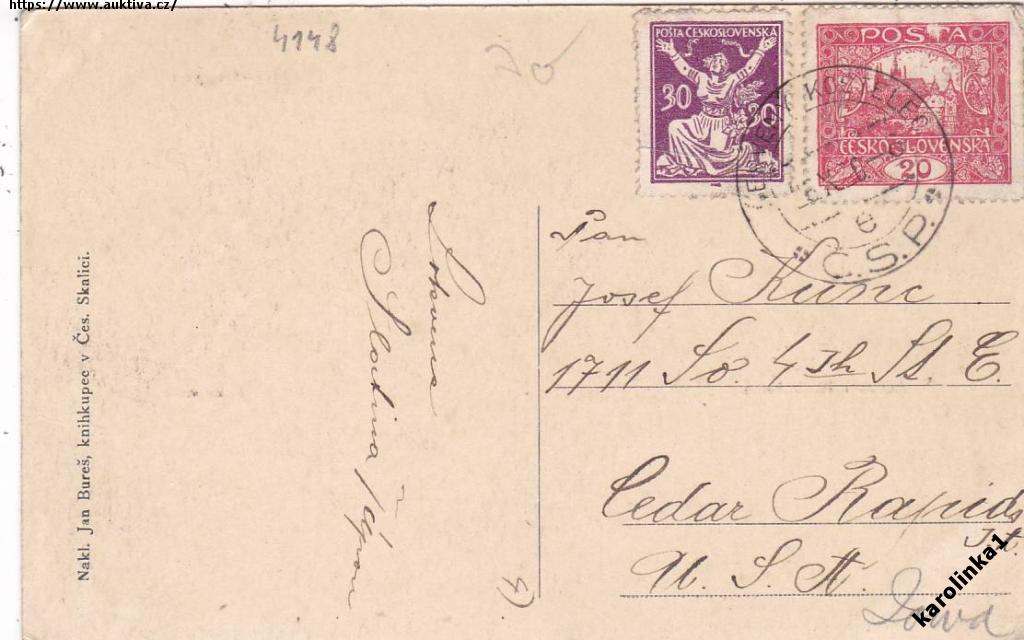 https://www.auktiva.cz/
4148
POŠTA ČESKOSLOVENSKÁ
30 30
POŠTA
ČESKOSLOVENSKÁ
20
KOSTELEC
Č.S.P.
Pan
Josef Kunc
1711 So. 4th St. E.
Cedar Rapids
U. S. A.
Iowa
Slatina
9)
Nakl. Jan Bureš, knihkupec v Čes. Skalici.
karolinka1